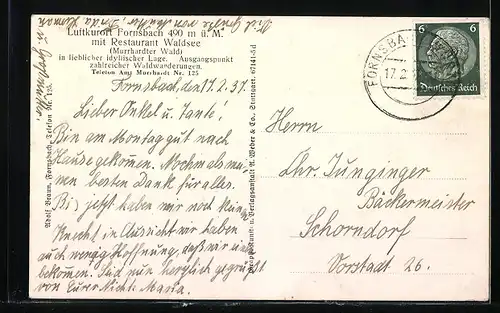 Luftkurort Fornsbach 490 m ü. M.
mit Restaurant Waldsee
(Murrhardter Wald)
in lieblicher idyllischer Lage. Ausgangspunkt
zahlreicher Waldwanderungen.
Telefon Amt Murrhardt Nr. 125
Fornsbach, den 17.2.37.
Lieber Onkel u. Tante!
Bin am Montag gut nach
Hause gekommen. Nochmals mei-
nen besten Dank für alles.
Bis jetzt haben wir noch kein
Knecht in Aussicht wir haben
auch wenig Hoffnung, daß wir ein
bekommen. Seid nun herzlich gegrüßt
von Eurer Nichte Maria.
Viel Grüße von Mutter,
u. Geschwister
Adolf Braun, Fornsbach, Telefon Nr. 135.
u. Verlagsanstalt A. Weber & Co., Stuttgart.
FORNSBACH
17.2.
6 6
Deutsches Reich
Herrn
Chr. Junginger
Bäckermeister
Schorndorf
Vorstadt 26.